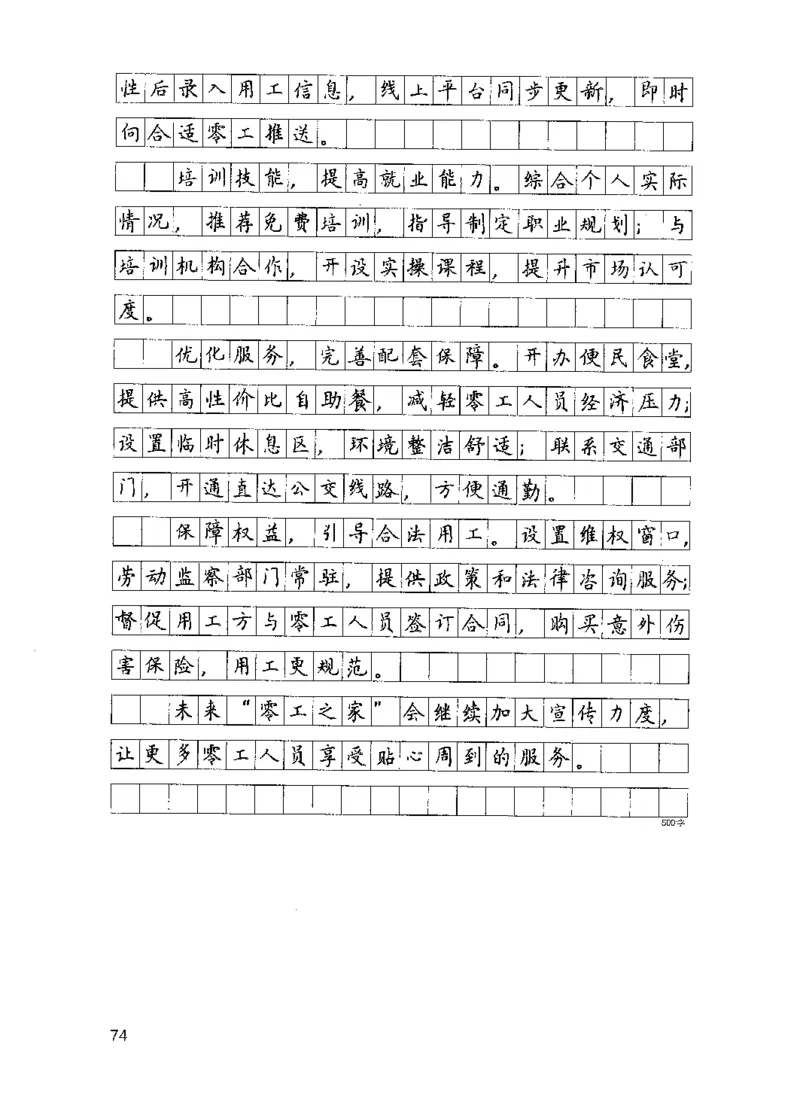 性后录入用工信息，线上平台同步更新，即时
向合适零工推送。
培训技能，提高就业能力。综合个人实际
情况，推荐免费培训，指导制定职业规划；与
培训机构合作，开设实操课程，提升市场认可
度。
优化服务，完善配套保障。开办便民食堂，
提供高性价比自助餐，减轻零工人员经济压力；
设置临时休息区，环境整洁舒适；联系交通部
门，开通直达公交线路，方便通勤。
保障权益，引导合法用工。设置维权窗口，
劳动监察部门常驻，提供政策和法律咨询服务；
督促用工方与零工人员签订合同，购买意外伤
害保险，用工更规范。
未来“零工之家”会继续加大宣传力度，
让更多零工人员享受贴心周到的服务。
500字
74